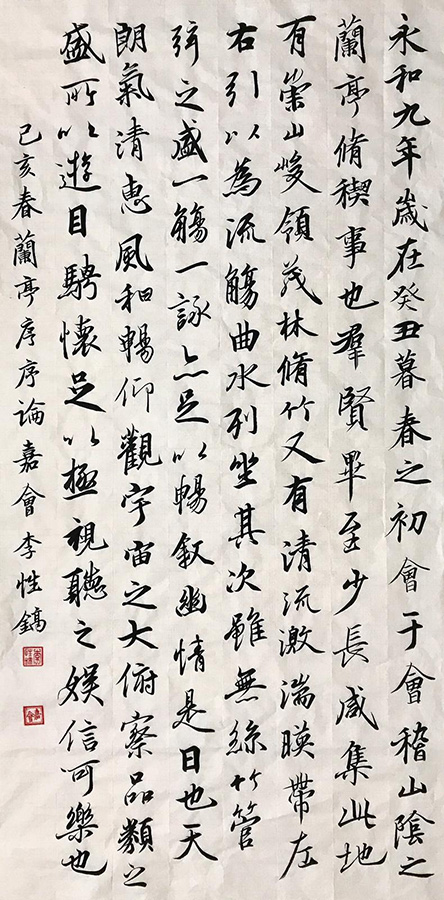 永和九年歲在癸丑暮春之初會于會稽山陰之
蘭亭脩稧事也羣賢畢至少長咸集此地
有崇山峻領茂林脩竹又有清流激湍暎帶左
右引以為流觴曲水列坐其次雖無絲竹管
弦之盛一觴一詠亦足以暢叙幽情是日也天
朗氣清惠風和暢仰觀宇宙之大俯察品類之
盛所以遊目騁懷足以極視聽之娛信可樂也
己亥春蘭亭序序論嘉會李性鎬